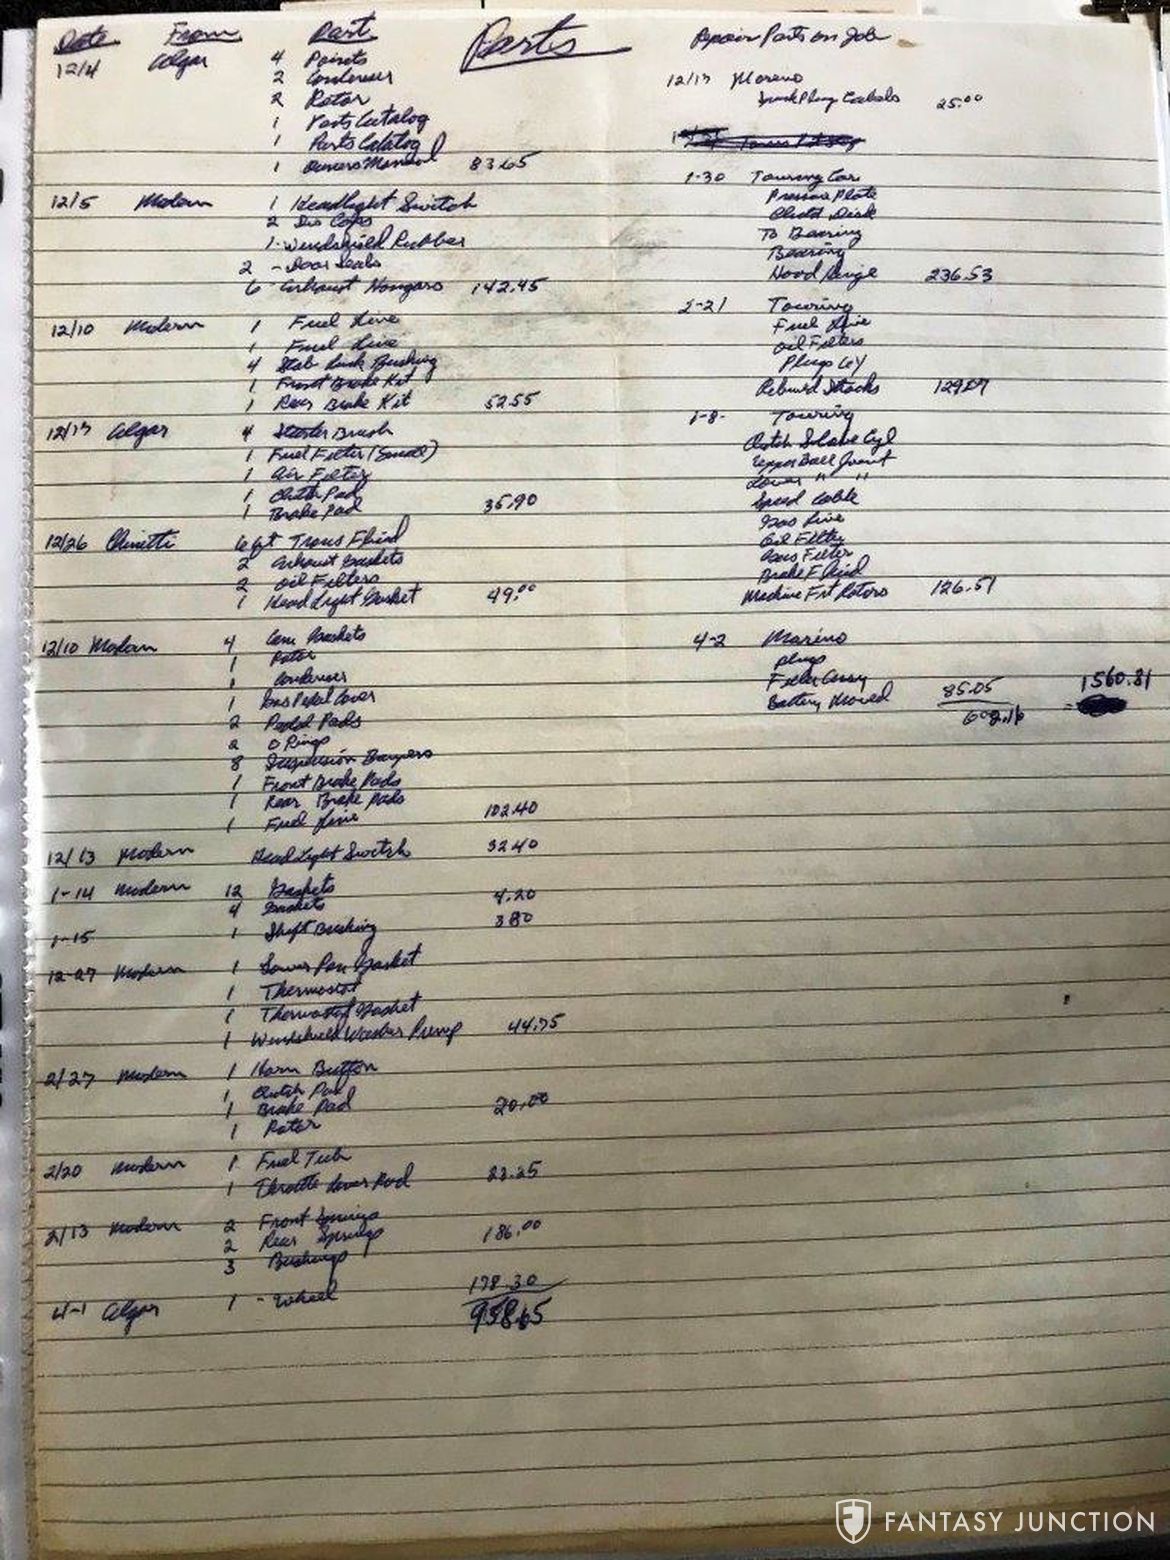 Date From Part Parts
12/4 Algar 4 Points
2 Condenser
2 Rotor
1 Parts Catalog
1 Parts Catalog
1 Owners Manual 83.65
12/5 Modern 1 Headlight Switch
2 Dis Caps
1 - Windshield Rubber
2 - Door Seals
6 - Exhaust Hangars 142.45
12/10 Modern 1 Fuel Line
1 Fuel Line
4 Stab Link Bushing
1 Front Brake Kit
1 Rear Brake Kit 52.55
12/17 Algar 4 Starter Brush
1 Fuel Filter (Small)
1 Air Filter
1 Clutch Pad
1 Brake Pad 35.90
12/26 Chinetti 6 qt Trans Fluid
2 Exhaust Gaskets
2 Oil Filters
1 Head Light Gasket 49.00
12/10 Modern 4 Cam Gaskets
1 Rotor
1 Condenser
1 Gas Pedal Cover
2 Pedal Pads
2 O Rings
8 Suspension Bumpers
1 Front Brake Pads
1 Rear Brake Pads
1 Fuel Line 102.40
12/13 Modern Head Light Switch 32.40
1-14 Modern 12 Gaskets 4.20
4 Gaskets
1-15 1 Shift Bushing 3.80
12-27 Modern 1 Lower Pan Gasket
1 Thermostat
1 Thermostat Gasket
1 Windshield Washer Pump 44.75
2/27 Modern 1 Horn Button
1 Clutch Pad
1 Brake Pad 20.00
1 Rotor
2/20 Modern 1 Fuel Tub
1 Throttle Lever Rod 22.25
2/13 Modern 2 Front Springs
2 Rear Springs 186.00
3 Bushings
178.30
4-1 Algar 1 - Wheel
958.65
Repair Parts on Job
12/17 Moreno
Spark Plug Cabels 25.00
1-30 Touring Car
Pressure Plate
Clutch Disk
To Bearing
Bearing
Hood Hinge 236.53
2-21 Touring
Fuel Line
Oil Filters
Plugs
Rebuild Shocks
Touring
Clutch Slave Cyl
Upper Ball Joint
Lower " "
Speed Cable
Gas Line
Oil Filter
Gas Filter
Brake Fluid
Machine Frt Rotors 126.51
4-2 Marino
plugs
Battery Moved 85.05
602.16
1560.81
FANTASY JUNCTION